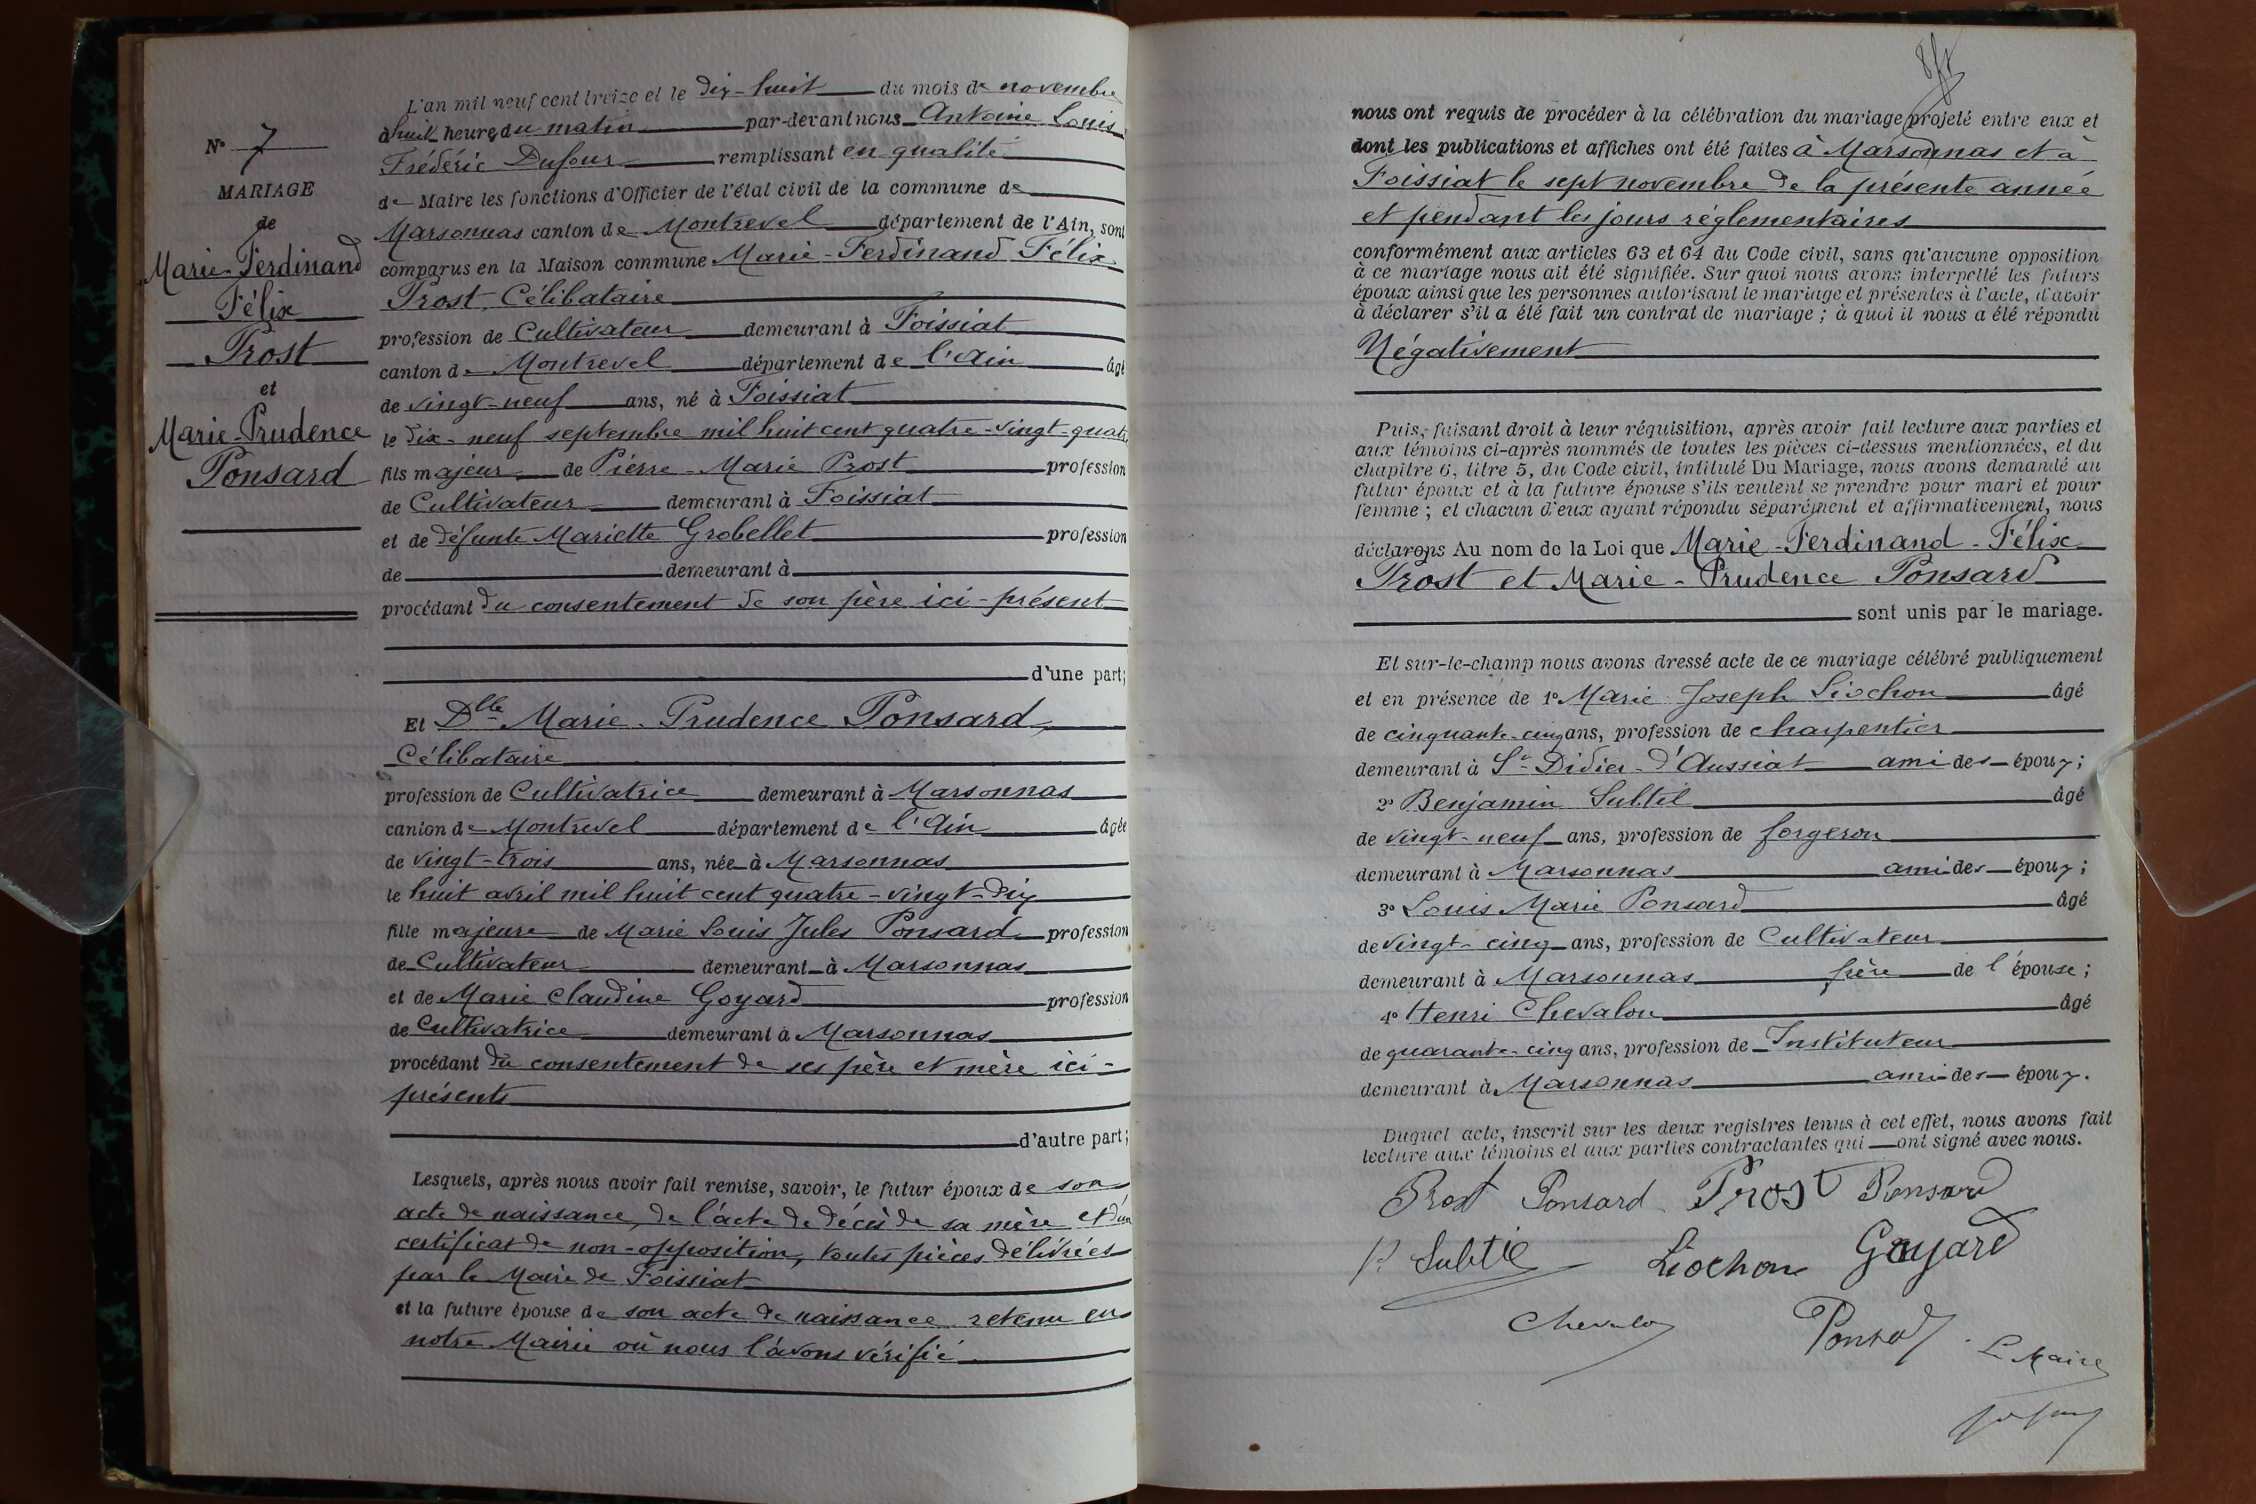 N° 7
MARIAGE
de
Marie-Ferdinand
Félix
Prost
et
Marie-Prudence
Ponsard
L'an mil neuf cent treize et le dix-huit du mois de novembre
à huit heures du matin par-devant nous Antoine Louis
Frédéric Dufour remplissant en qualité
de Maire les fonctions d'Officier de l'état civil de la commune de
Marsonnas canton de Montrevel département de l'Ain, sont
comparus en la Maison commune Marie-Ferdinand Félix
Prost, Célibataire
profession de Cultivateur demeurant à Foissiat
canton de Montrevel département de l'Ain âgé
de vingt-neuf ans, né à Foissiat
le dix-neuf septembre mil huit cent quatre-vingt-quatre
fils majeur de Pierre-Marie Prost profession
de Cultivateur demeurant à Foissiat
et de défunte Mariette Grobellet profession
de demeurant à
procédant du consentement de son père ici-présent
d'une part;
Et Dlle Marie-Prudence Ponsard,
Célibataire
profession de Cultivatrice demeurant à Marsonnas
canton de Montrevel département de l'Ain âgée
de vingt-trois ans, née à Marsonnas
le huit avril mil huit cent quatre-vingt-dix
fille majeure de Marie Louis Jules Ponsard profession
de Cultivateur demeurant à Marsonnas
et de Marie Claudine Goyard profession
de Cultivatrice demeurant à Marsonnas
procédant du consentement de ses père et mère ici-
présents
d'autre part;
Lesquels, après nous avoir fait remise, savoir, le futur époux de son
acte de naissance, de l'acte de décès de sa mère et d'un
certificat de non-opposition, toutes pièces délivrées
par le Maire de Foissiat
et la future épouse de son acte de naissance retenu en
notre Mairie où nous l'avons vérifié
nous ont requis de procéder à la célébration du mariage projeté entre eux et
dont les publications et affiches ont été faites à Marsonnas et à
Foissiat le sept novembre de la présente année
et pendant les jours réglementaires
conformément aux articles 63 et 64 du Code civil, sans qu'aucune opposition
à ce mariage nous ait été signifiée. Sur quoi nous avons interpellé les futurs
époux ainsi que les personnes autorisant le mariage et présentes à l'acte, d'avoir
à déclarer s'il a été fait un contrat de mariage; à quoi il nous a été répondu
Négativement
Puis, faisant droit à leur réquisition, après avoir fait lecture aux parties et
aux témoins ci-après nommés de toutes les pièces ci-dessus mentionnées, et du
chapitre 6, titre 5, du Code civil, intitulé Du Mariage, nous avons demandé au
futur époux et à la future épouse s'ils veulent se prendre pour mari et pour
femme; et chacun d'eux ayant répondu séparément et affirmativement, nous
déclarons Au nom de la Loi que Marie-Ferdinand-Félix
Prost et Marie-Prudence Ponsard
sont unis par le mariage.
Et sur-le-champ nous avons dressé acte de ce mariage célébré publiquement
et en présence de 1° Marie Joseph Liochon âgé
de cinquante-cinq ans, profession de charpentier
demeurant à St Didier-d'Aussiat ami des époux;
2° Benjamin Subtil âgé
de vingt-neuf ans, profession de forgeron
demeurant à Marsonnas ami des époux;
3° Louis Marie Ponsard âgé
de vingt-cinq ans, profession de Cultivateur
demeurant à Marsonnas frère de l'épouse;
4° Henri Chevalon âgé
de quarante-cinq ans, profession de Instituteur
demeurant à Marsonnas ami des époux.
Duquel acte, inscrit sur les deux registres tenus à cet effet, nous avons fait
lecture aux témoins et aux parties contractantes qui ont signé avec nous.
Prost Ponsard Prost Ponsard
Subtil Liochon Goyard
Chevalon Ponsard Le Maire
Dufour